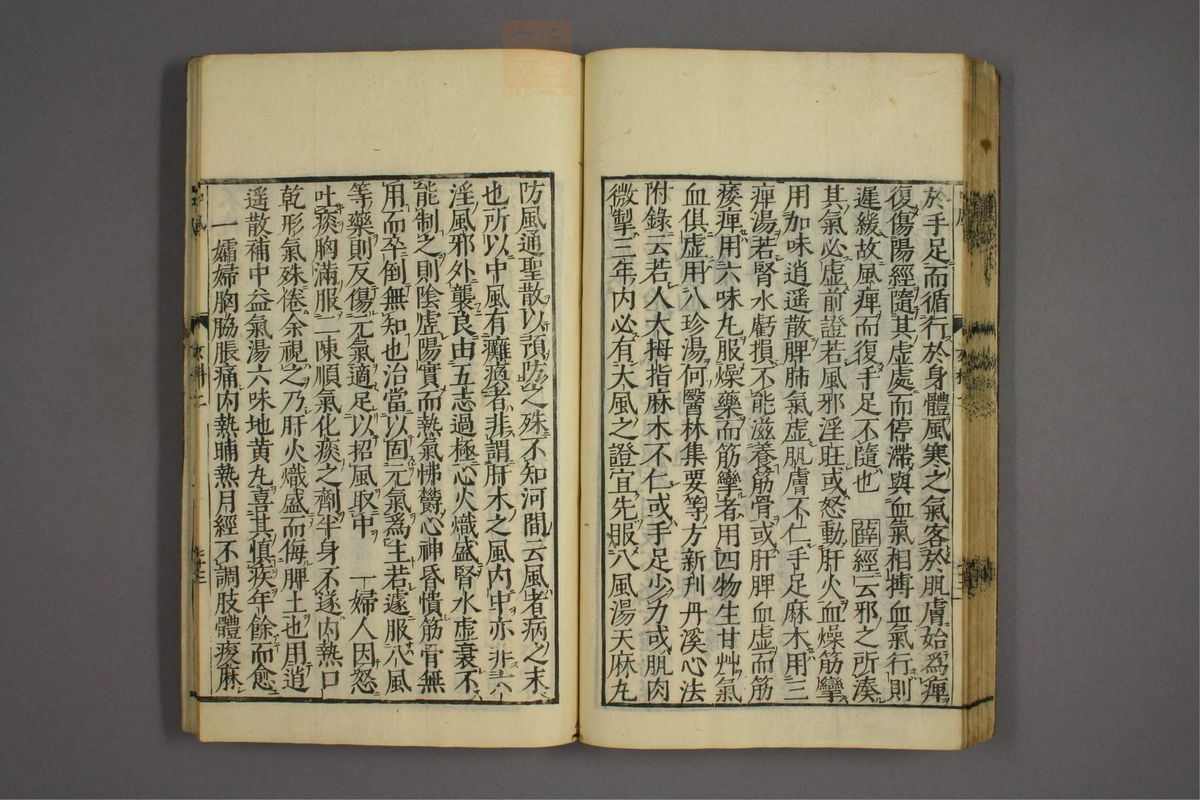 於手足而循行於身體風寒之氣客於肌膚始爲痺
復傷陽經隨其虛處而停滯與血氣相搏血氣行則
遲緩故風痺而復手足不隨也 薛 經云邪之所湊
其氣必虛前證若風邪淫旺或怒動肝火血燥筋攣
用加味逍遥散脾肺氣虛肌膚不仁手足麻木用三
痺湯若腎水虧損不能滋養筋骨或肝脾血虛而筋
痿痺用六味丸服燥藥而筋攣者用四物生甘艸氣
血俱虛用八珍湯何醫林集要等方新刋丹溪心法
附錄云若人大拇指麻木不仁或手足少力或肌肉
微掣三年內必有大風之證宜先服八風湯天麻丸
防風通聖散以預防之殊不知河間云風者病之末
也所以中風有癱瘓者非謂肝木之風內中亦非六
淫風邪外襲良由五志過極心火熾盛腎水虛衰不
能制之則陰虛陽實而熱氣怫鬱心神昏憒筋骨無
用而卒倒無知也治當以固元氣爲主若遽服八風
等藥則反傷元氣適足以招風取中 一婦人因怒
吐痰胸滿服二陳順氣化痰之劑半身不遂內熱口
乾形氣殊倦余視之乃肝火熾盛而侮脾土也用逍
遥散補中益氣湯六味地黃丸喜其愼疾年餘而愈
一孀婦胸脇脹痛內熱晡熱月經不調肢體痠麻